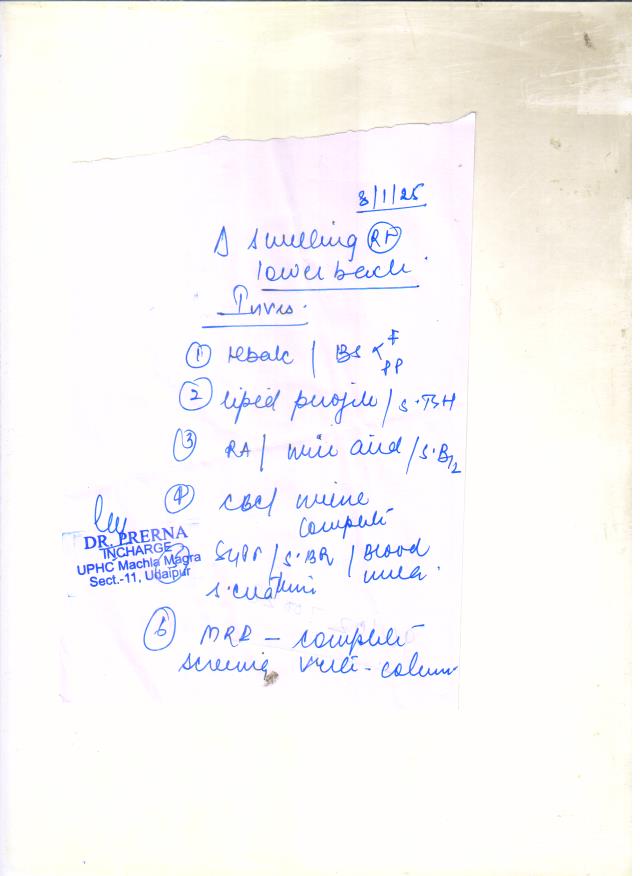 8/1/25
∆ swelling (Rt)
lower back.
Invs.
(1) HbA1c / BS < F
PP
(2) lipid profile / S.TSH
(3) RA / uric acid / S.B12
(4) CBC / urine
complete
DR. PRERNA
INCHARGE
UPHC Machla Magra
Sect.-11, Udaipur
SGPT / S.BR / Blood
urea.
S.creatinine
(6) MRI - complete
screening vert-column